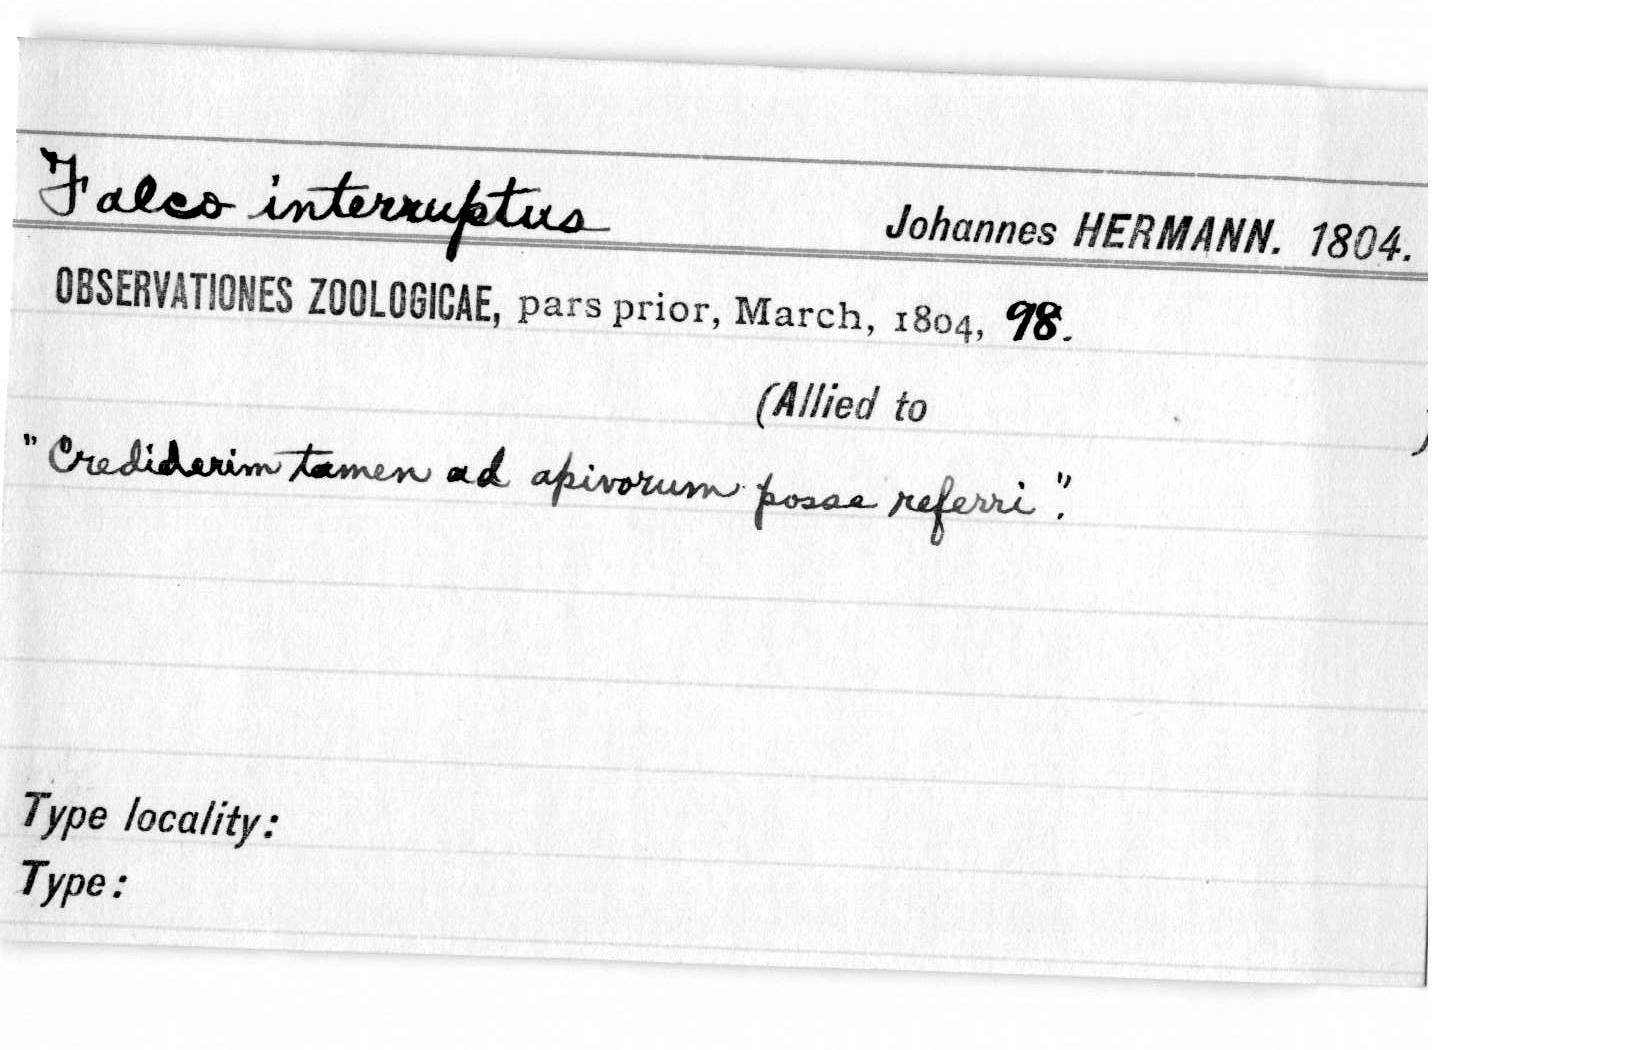 Falco interruptus Johannes HERMANN. 1804.
OBSERVATIONES ZOOLOGICAE, pars prior, March, 1804, 98.
(Allied to )
"Crediderim tamen ad apivorum posse referri".
Type locality:
Type: